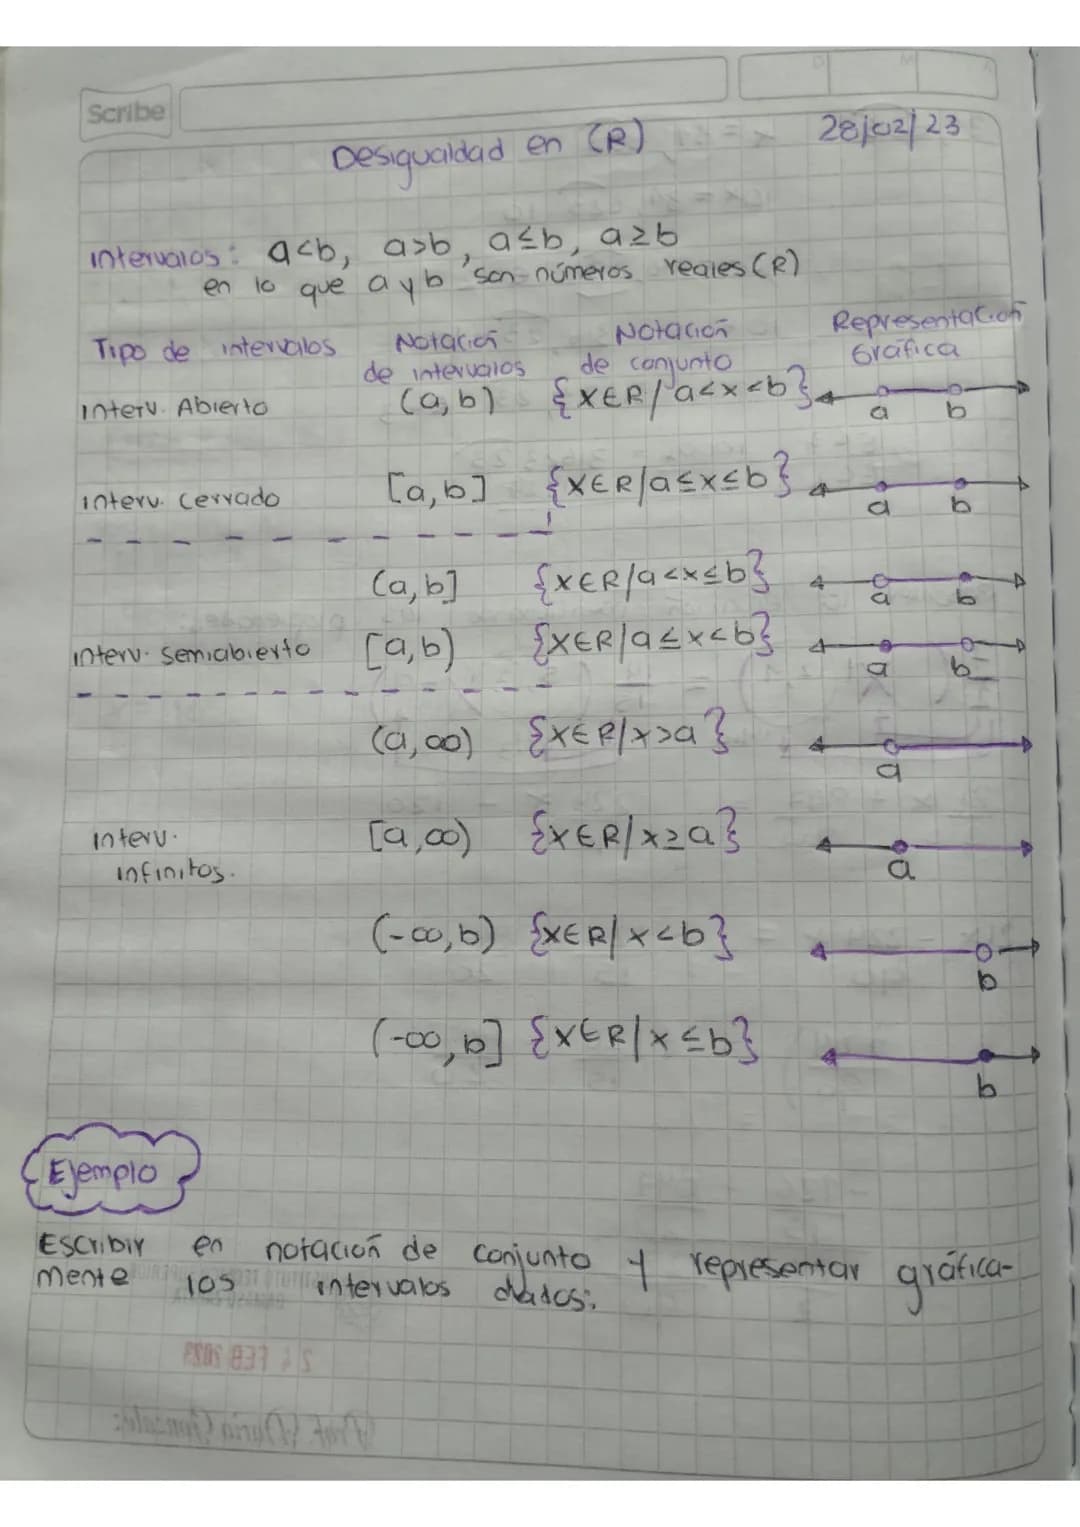 Scribe
Desigualdad en (R) 28/02/23
intervalos: a<b, a>b, a≤b, a≥b
en lo que a y b son números reales (R)
Tipo de intervalos Notación de intervalos Notación de conjunto Representación Gráfica
Interv. Abierto (a,b) {x∈R/a<x<b} a b
interv. cerrado [a,b] {x∈R/a≤x≤b} a b
(a,b] {x∈R/a<x≤b} a b
interv. semiabierto [a,b) {x∈R/a≤x<b} a b
(a,∞) {x∈R/x>a} a
interv. infinitos. [a,∞) {x∈R/x≥a} a
(-∞,b) {x∈R/x<b} b
(-∞,b] {x∈R/x≤b} b
Ejemplo
Escribir en notación de conjunto y representar gráfica-
mente los intervalos dados:
24 FEB 2023